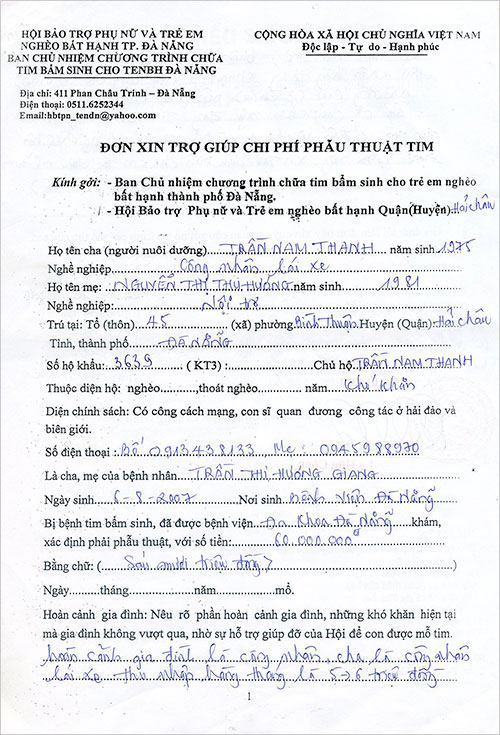 HỘI BẢO TRỢ PHỤ NỮ VÀ TRẺ EM
NGHÈO BẤT HẠNH TP. ĐÀ NẴNG
BAN CHỦ NHIỆM CHƯƠNG TRÌNH CHỮA
TIM BẨM SINH CHO TENBH ĐÀ NẴNG
CỘNG HÒA XÃ HỘI CHỦ NGHĨA VIỆT NAM
Độc lập - Tự do - Hạnh phúc
Địa chỉ: 411 Phan Châu Trinh – Đà Nẵng
Điện thoại: 0511.6252344
Email:hbtpn_tendn@yahoo.com
ĐƠN XIN TRỢ GIÚP CHI PHÍ PHẪU THUẬT TIM
Kính gởi: - Ban Chủ nhiệm chương trình chữa tim bẩm sinh cho trẻ em nghèo
bất hạnh thành phố Đà Nẵng.
- Hội Bảo trợ Phụ nữ và Trẻ em nghèo bất hạnh Quận(Huyện): Hải Châu
Họ tên cha (người nuôi dưỡng) TRẦN NAM THANH năm sinh 1975
Nghề nghiệp Công nhân lái xe
Họ tên mẹ: NGUYỄN THỊ THU HƯƠNG năm sinh 1981
Nghề nghiệp: Nội trợ
Trú tại: Tổ (thôn) 45 (xã) phường Bình Thuận Huyện (Quận): Hải Châu
Tỉnh, thành phố ĐÀ NẴNG
Số hộ khẩu: 3639 ( KT3) : Chủ hộ TRẦN NAM THANH
Thuộc diện hộ: nghèo ,thoát nghèo năm khó khăn
Diện chính sách: Có công cách mạng, con sĩ quan đương công tác ở hải đảo và
biên giới.
Số điện thoại : Bố 0913438133 Mẹ : 0945988970
Là cha, mẹ của bệnh nhân TRẦN THỊ HƯƠNG GIANG
Ngày sinh 6-8-2007 Nơi sinh Bệnh Viện Đà Nẵng
Bị bệnh tim bẩm sinh, đã được bệnh viện Đa Khoa Đà Nẵng khám,
xác định phải phẫu thuật, với số tiền: 60.000.000đ
Bằng chữ: ( Sáu mươi triệu đồng )
Ngày tháng năm mổ.
Hoàn cảnh gia đình: Nêu rõ phần hoàn cảnh gia đình, những khó khăn hiện tại
mà gia đình không vượt qua, nhờ sự hỗ trợ giúp đỡ của Hội để con được mổ tim.
hoàn cảnh gia đình là công nhân, cha là công nhân
lái xe thu nhập hàng tháng là 5 → 6 triệu đồng
1